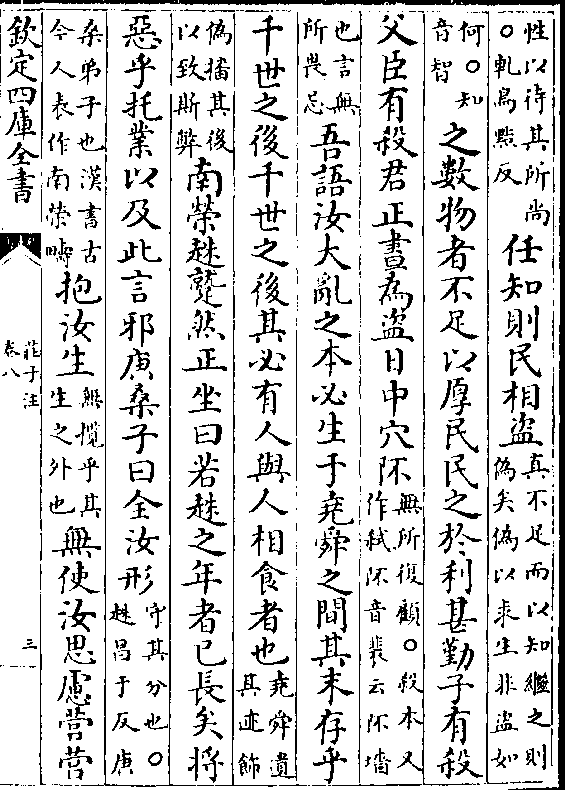 性以待其所尚
○軋烏黠反
任知則民相盗
真不足而以知繼之則
偽矣偽以求生非盗如
何○知
音智
之數物者不足以厚民民之於利甚勤子有殺
父臣有殺君正晝為盗日中穴阫
無所復顧○殺本又
作弑阫音裴云阫墻
也言無
所畏忌
吾語汝大亂之本必生于堯舜之間其末存乎
千世之後千世之後其必有人與人相食者也
堯舜遺
其迹飾
偽播其後
以致斯弊
南榮趎蹵然正坐曰若趎之年者已長矣將
惡乎托業以及此言邪庚桑子曰全汝形
守其分也○
趎昌于反庚
桑弟子也漢書古
今人表作南榮疇
抱汝生
無攬乎其
生之外也
無使汝思慮營營
欽定四庫全書
莊子注
卷八
三